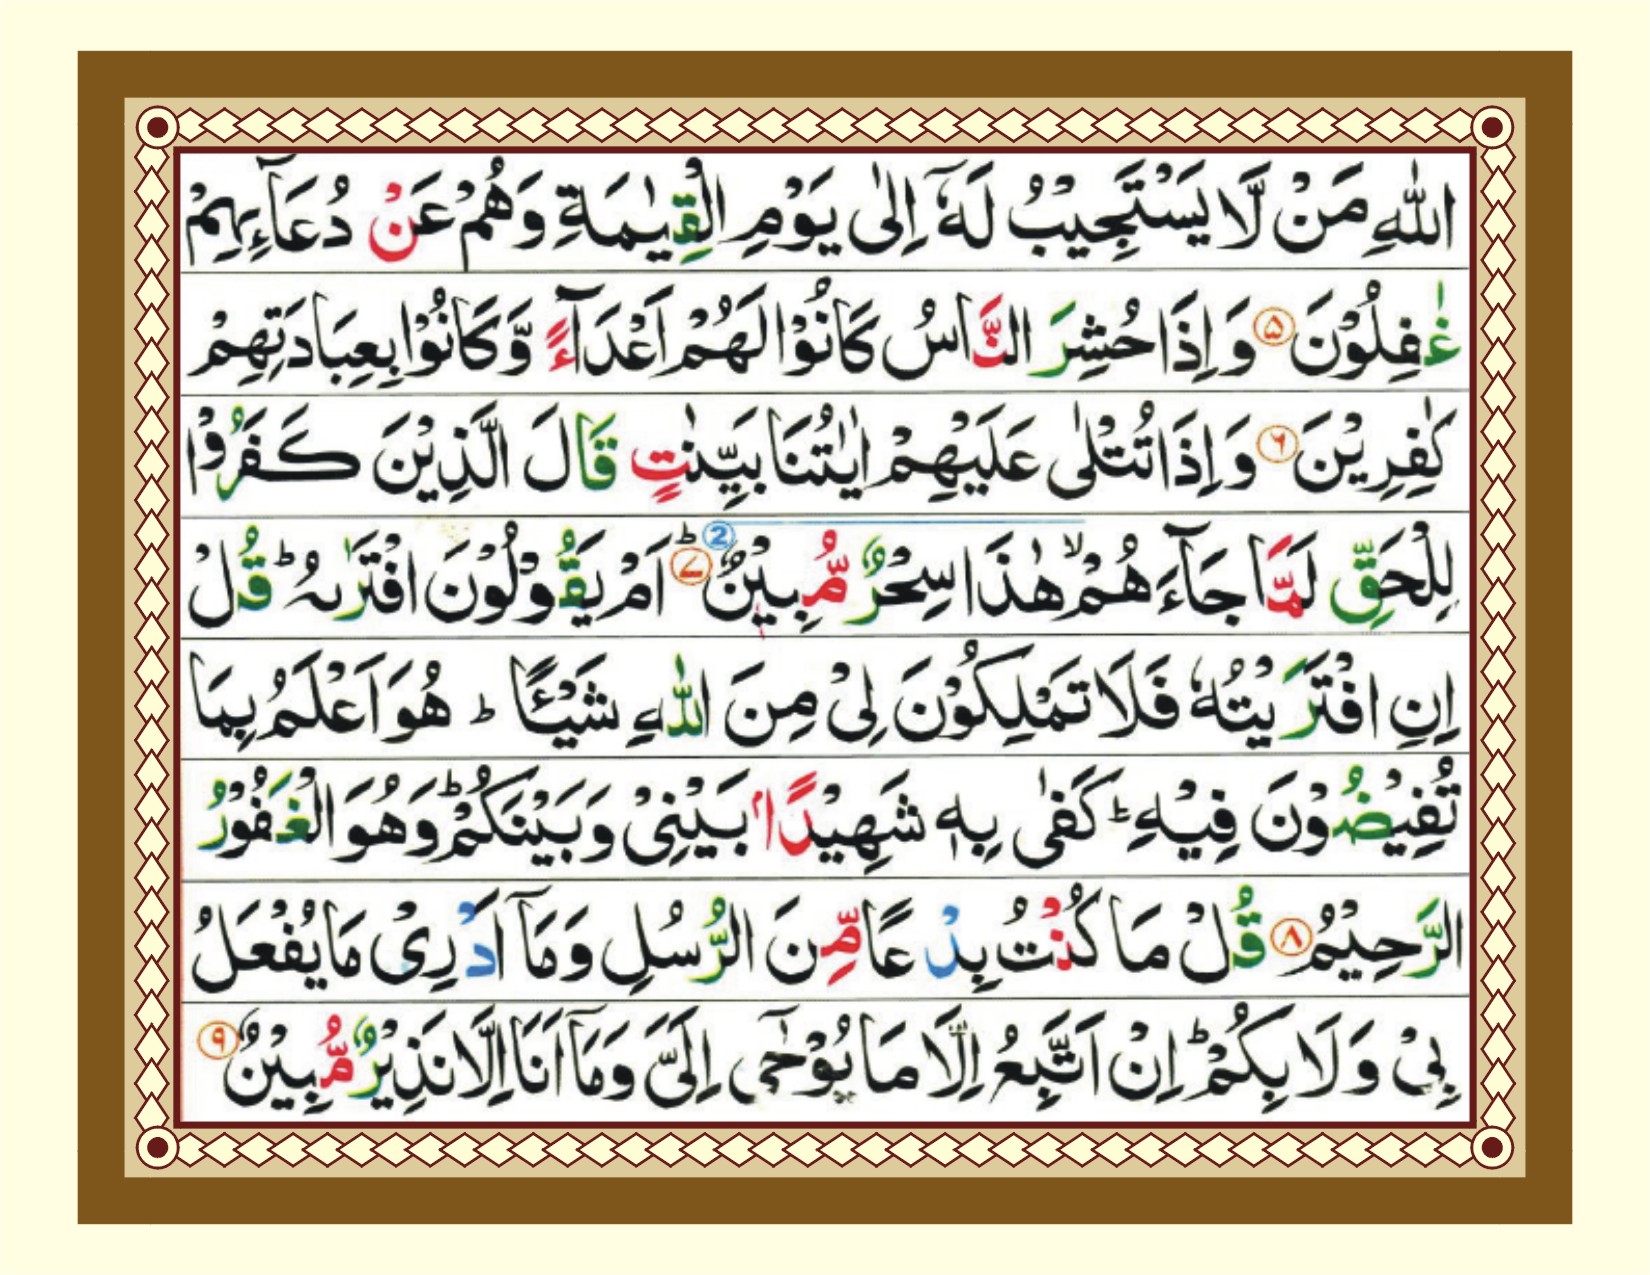 اللّٰهِ مَنْ لَّا يَسْتَجِيْبُ لَهٗۤ اِلٰى يَوْمِ الْقِيٰمَةِ وَهُمْ عَنْ دُعَآءِهِمْ
غٰفِلُوْنَ ۵ وَ اِذَا حُشِرَ النَّاسُ كَانُوْا لَهُمْ اَعْدَآءً وَّ كَانُوْا بِعِبَادَتِهِمْ
كٰفِرِيْنَ ۶ وَ اِذَا تُتْلٰى عَلَيْهِمْ اٰيٰتُنَا بَيِّنٰتٍ قَالَ الَّذِيْنَ كَفَرُوْا
لِلْحَقِّ لَمَّا جَآءَ هُمْ ۙ هٰذَا سِحْرٌ مُّبِيْنٌ ۷ ؕ 2 اَمْ يَقُوْلُوْنَ افْتَرٰىهُ ؕ قُلْ
اِنِ افْتَرَيْتُهٗ فَلَا تَمْلِكُوْنَ لِىْ مِنَ اللّٰهِ شَيْـًٔا ؕ هُوَ اَعْلَمُ بِمَا
تُفِيْضُوْنَ فِيْهِ ؕ كَفٰى بِهٖ شَهِيْدًۢا بَيْنِىْ وَبَيْنَكُمْ ؕ وَهُوَ الْغَفُوْرُ
الرَّحِيْمُ ۸ قُلْ مَا كُنْتُ بِدْعًا مِّنَ الرُّسُلِ وَمَاۤ اَدْرِىْ مَا يُفْعَلُ
بِىْ وَلَا بِكُمْ ؕ اِنْ اَتَّبِعُ اِلَّا مَا يُوْحٰٓى اِلَىَّ وَمَاۤ اَنَا اِلَّا نَذِيْرٌ مُّبِيْنٌ ۹